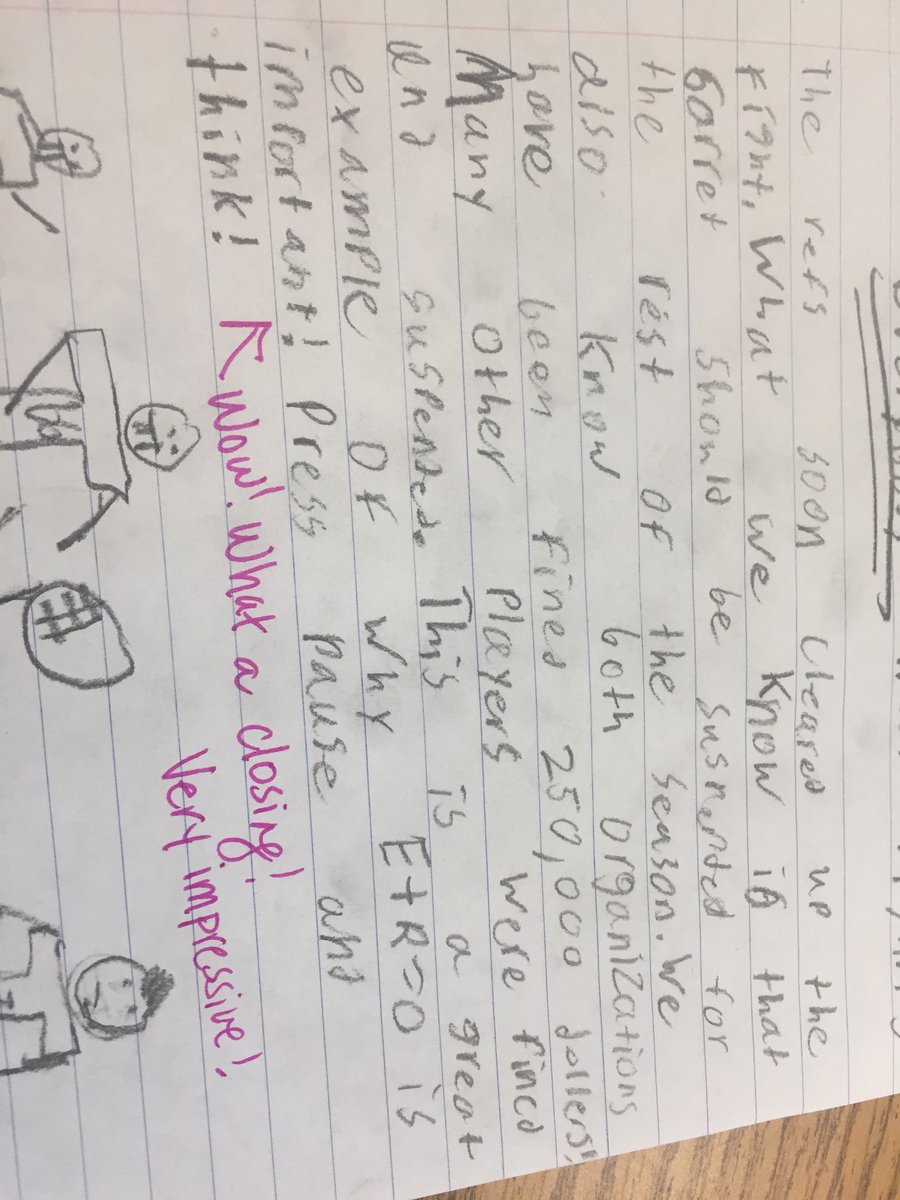 the refs soon cleared up the
Fight. What we know is that
Garret should be suspented for
the rest of the season. We
also know both organizations
have been fined 250,000 dollers!
Many other players were fined
and suspented. This is a great
example of why E+R=O is
important! Press pause and
think!
Wow! What a closing!
Very impressive!